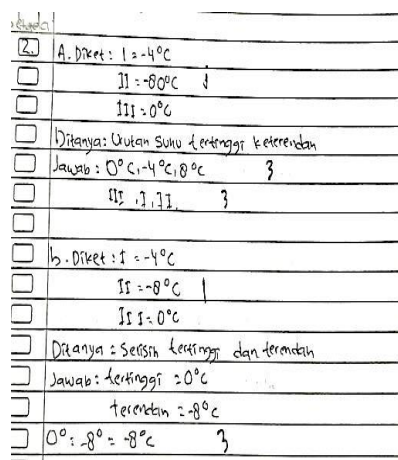 2. A. Diket : I = -4°C
II = -80°C 1
III = 0°C
Ditanya : Urutan Suhu tertinggi keterendah
Jawab : 0°C, -4°C, 8°C 3
III, I, II. 3
b. Diket : I = -4°C
II = -8°C 1
III = 0°C
Ditanya : Selisih tertinggi dan terendah
Jawab : tertinggi = 0°C
terendah = -8°C
0° : -8° = -8°C 3